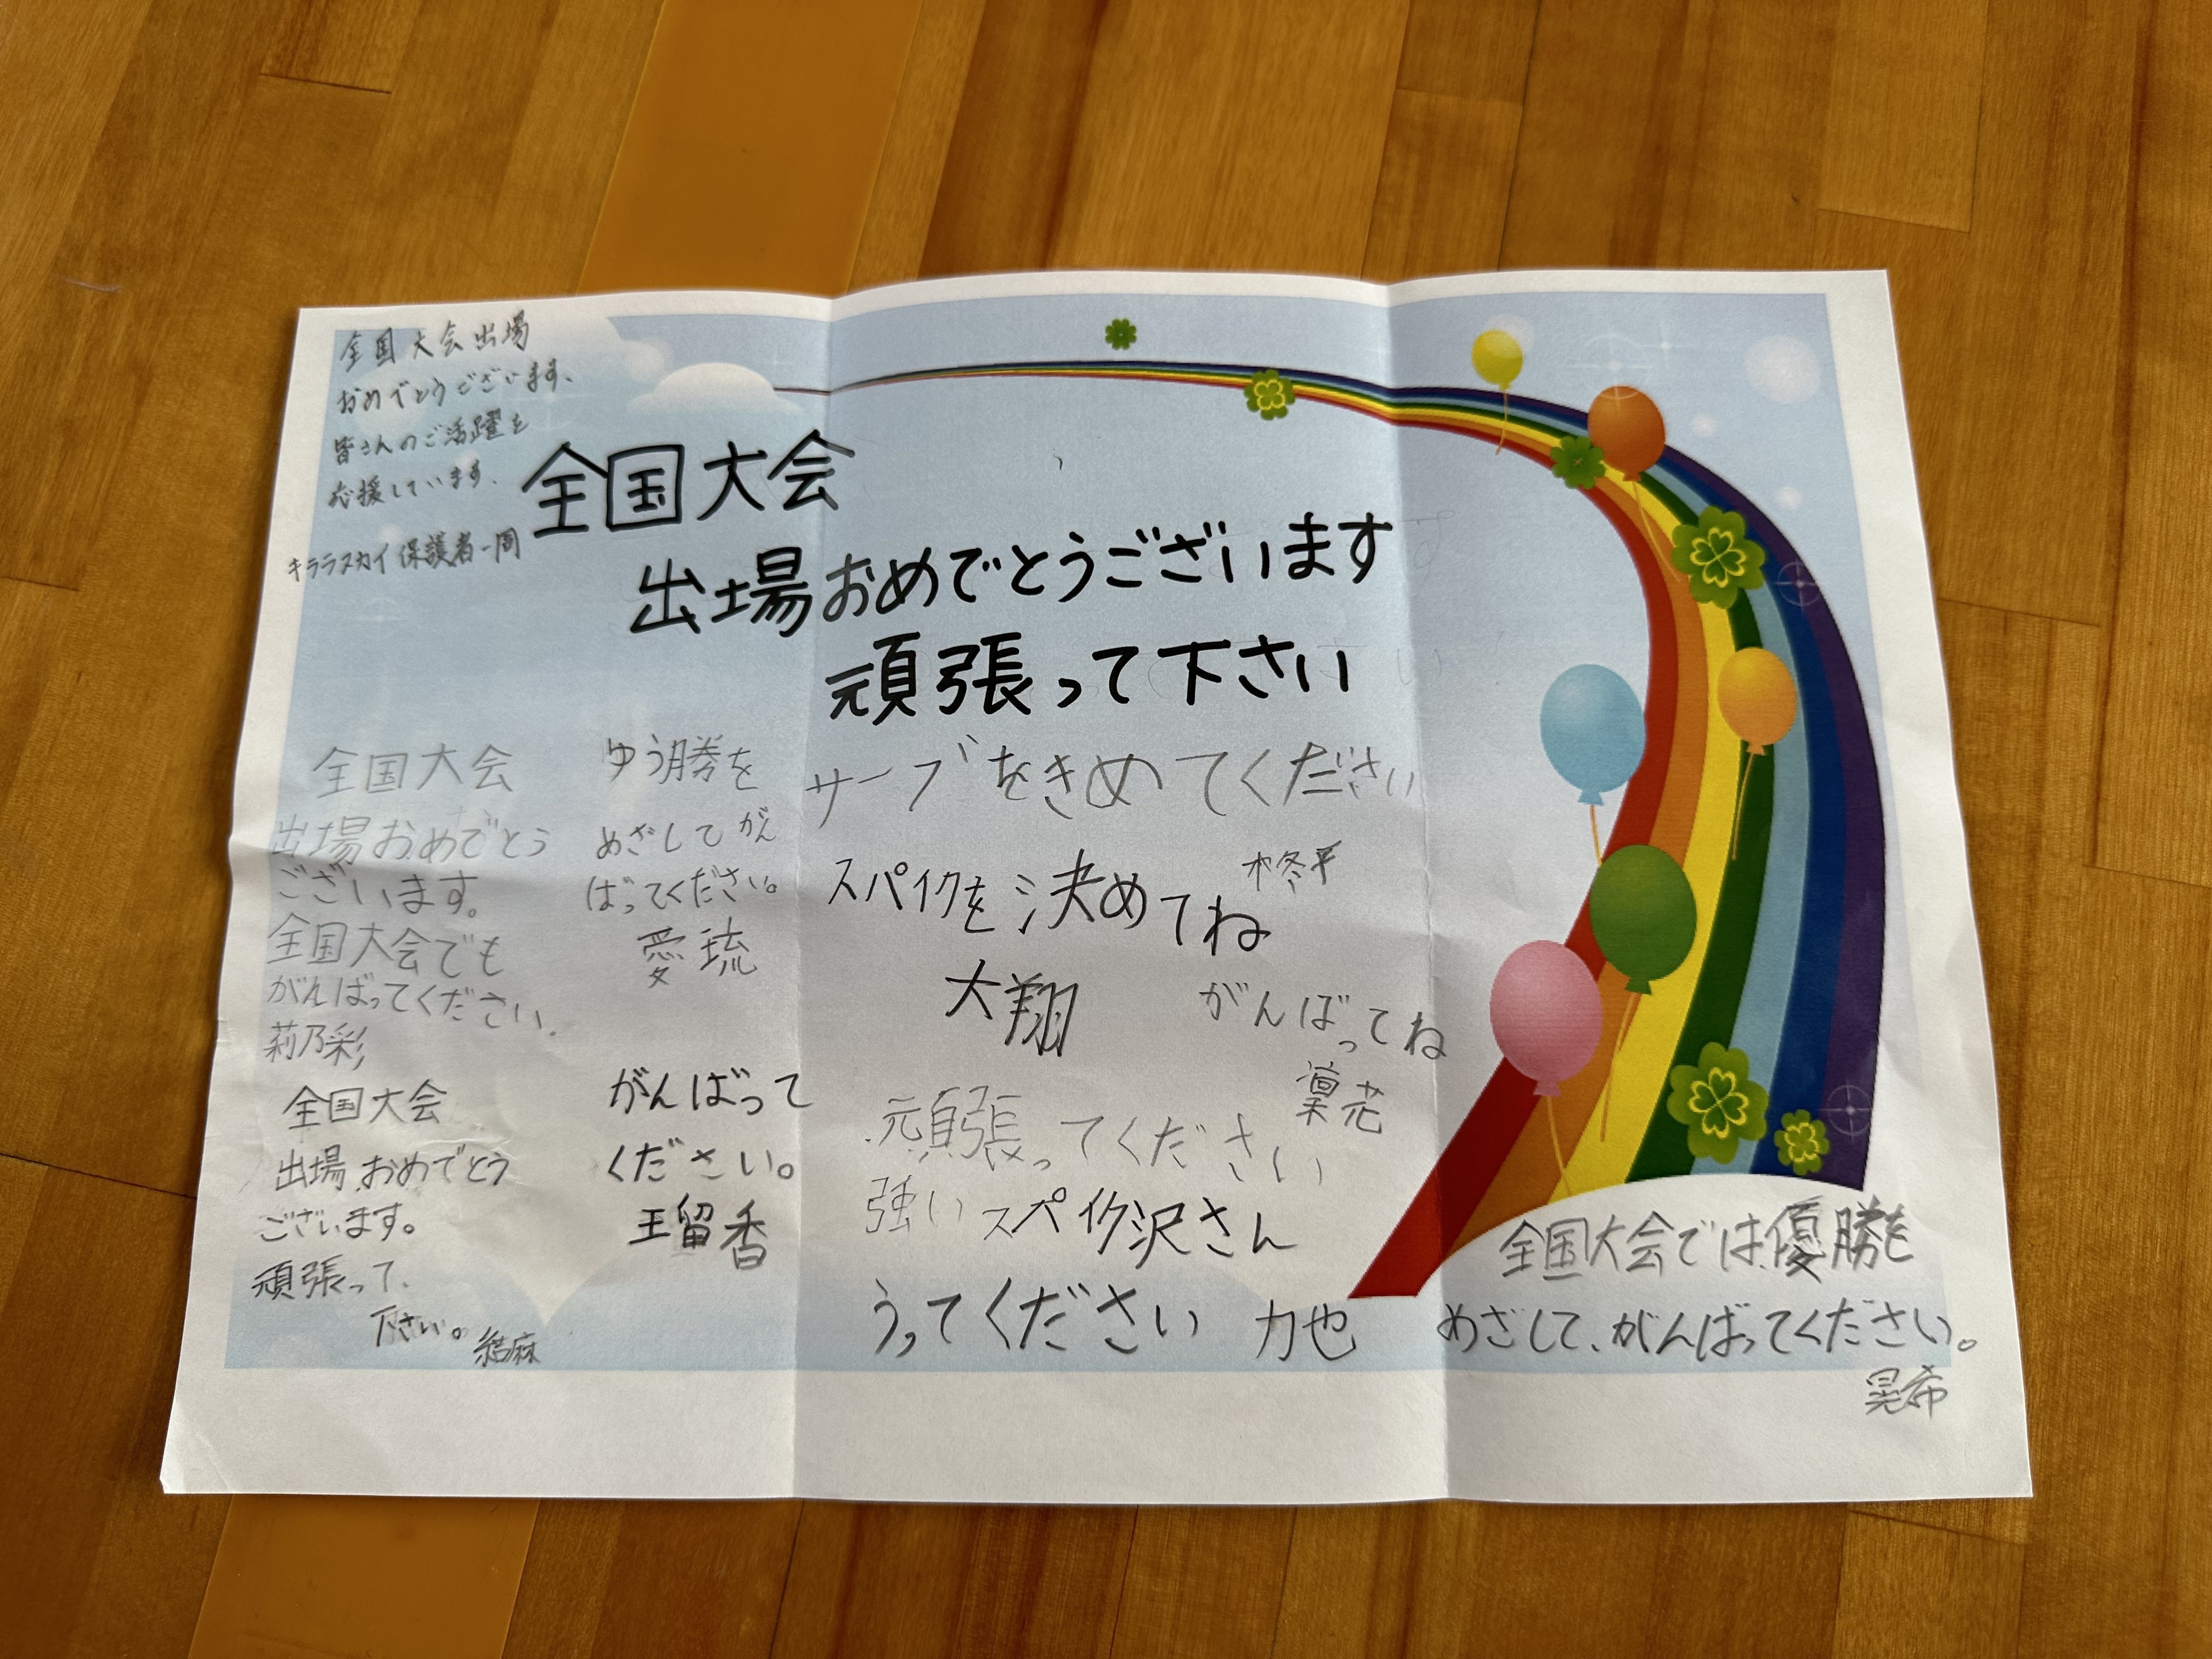 全国大会出場
おめでとうございます、
皆さんのご活躍を
応援しています、
キララスカイ保護者一同
全国大会
出場おめでとうございます
頑張って下さい
全国大会
出場おめでとう
ございます。
全国大会でも
がんばってください.
莉乃彩
ゆう勝を
めざしてがん
ばってください。
愛琉
サーブをきめてください
柊平
スパイクを決めてね
大翔
がんばってね
凜花
全国大会
出場おめでとう
ございます。
頑張って、
下さい。
結麻
がんばって
ください。
王留香
頑張ってください
強いスパイク沢さん
うってください 力也
全国大会では優勝を
めざして、がんばってください。
晃希